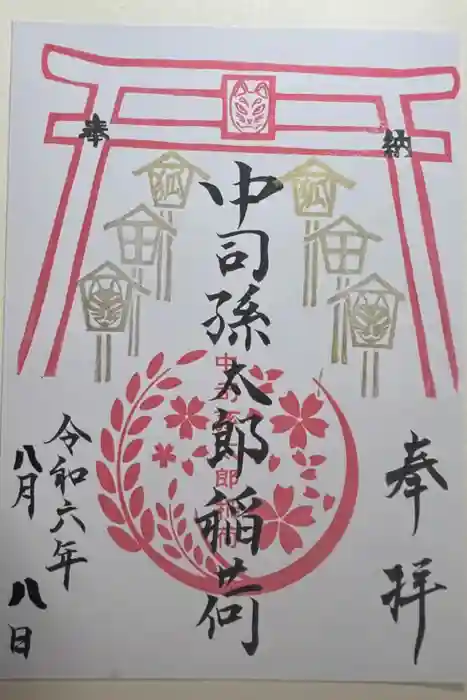 奉
納
狐
狐
田
田
奉拝
中司孫太郎稲荷
中司孫太郎稲荷
令和六年
八月 八日